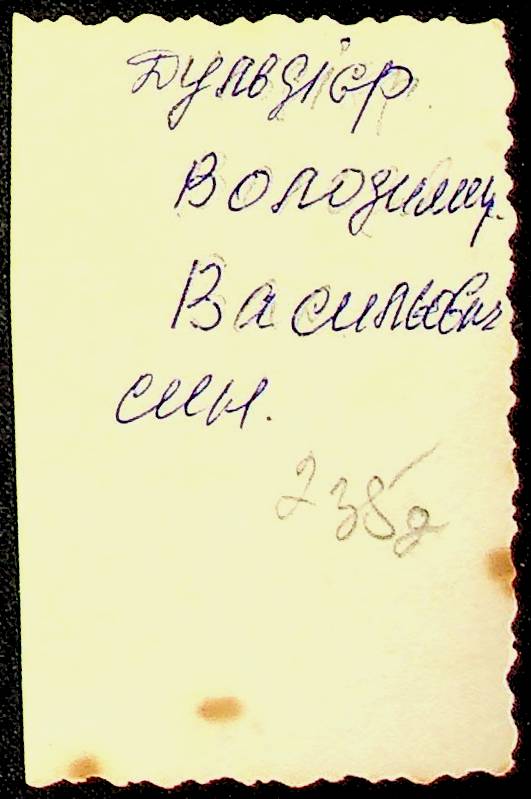 Дульдієр
Володимир.
Васильович
сиы.
235д